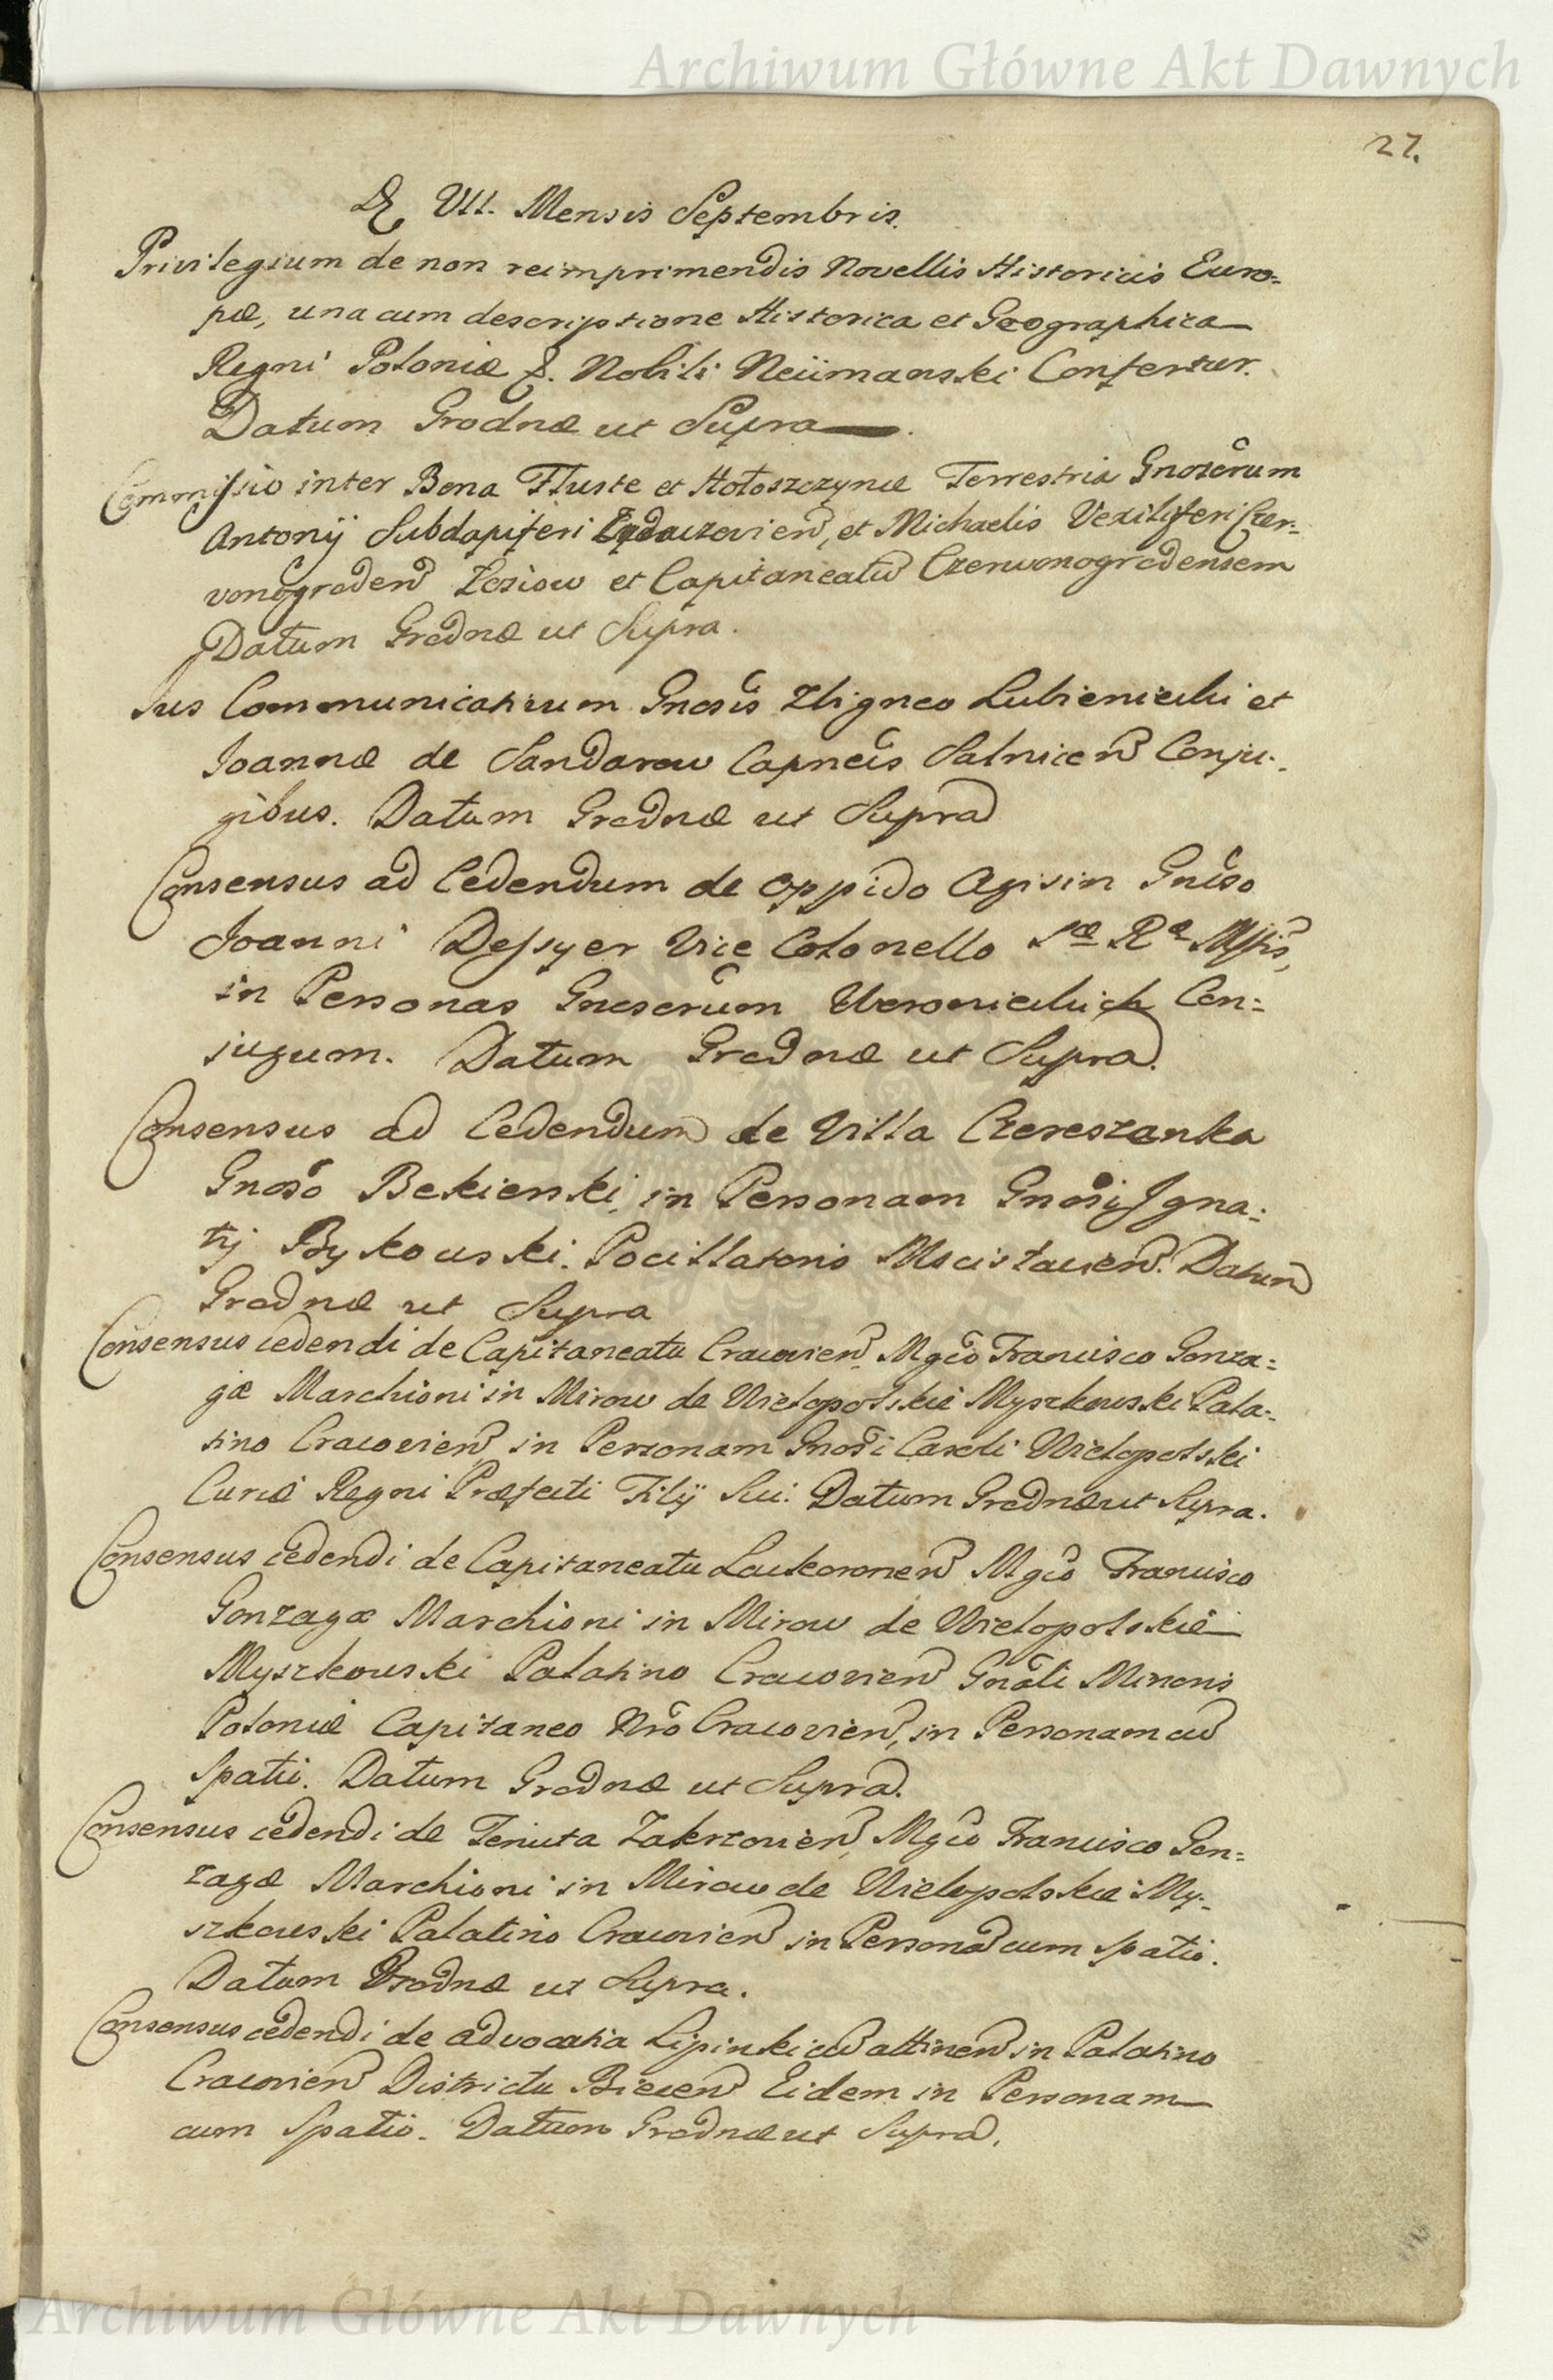 Archiwum Główne Akt Dawnych
27.
Die VII. Mensis Septembris.
Privilegium de non reimprimendis Novellis Historicis Euro=
pæ, una cum descriptione Historica et Geographica
Regni Poloniæ &. Nobili Neümanski Confertur.
Datum Grodnæ ut Supra.
Commissio inter Bona Tłuste et Hołoszczyńce Terrestria Gnosorum
Antonij Subdapiferi et Michaelis Vexiliferi Czer=
vonogroden Łosiow et Capitaneatū Czerwonogrodensem
Datum Grodnæ ut Supra.
Jus Communicativum Gnosis Zbigneo Lubieniecki et
Joannæ de Sandorow Capneis Salnicen Conju=
gibus. Datum Grodnæ ut Supra
Consensus ad Cedendum de Oppido Ozisin Gnoso
Joanni Dessyer Vice Colonello Sæ Ræ Mttis,
in Personas Gnosorum Woronieckich Con=
jugum. Datum Grodnæ ut Supra.
Consensus ad Cedendum de Villa Czereszanka
Gnoso Bekierski, in Personam Gnosi Igna=
tij Bykowski. Pocillatoris Mscisławien. Datum
Grodnæ ut Supra
Consensus cedendi de Capitaneatu Cracovien, Mgco Francisco Gonza=
gæ Marchioni in Mirow de Wielopolskie Myszkowski Pala=
tino Cracovien, in Personam Gnosi Caroli Wielopolski
Curiæ Regni Præfecti Filij Sui. Datum Grodnæ ut Supra.
Consensus cedendi de Capitaneatu Lanckoronen Mgco Francisco
Gonzagæ Marchioni in Mirow de Wielopolskie
Myszkowski Palatino Cracovien Gnali Minoris
Poloniæ Capitaneo Nro Cracovien, in Personam cū
Spatii. Datum Grodnæ ut Supra.
Consensus cedendi de Tenuta Zakrzovien, Mgco Francisco Gon=
zagæ Marchioni in Mirow de Wielopolskie My=
szkowski Palatino Cracovien in Personā cum spatio.
Datum Grodnæ ut Supra.
Consensus cedendi de advocatia Lipinki cū attinen in Palatino
Cracovien Districtu Biecen Eidem in Personam
cum Spatio. Datum Grodnæ ut Supra.
Archiwum Główne Akt Dawnych